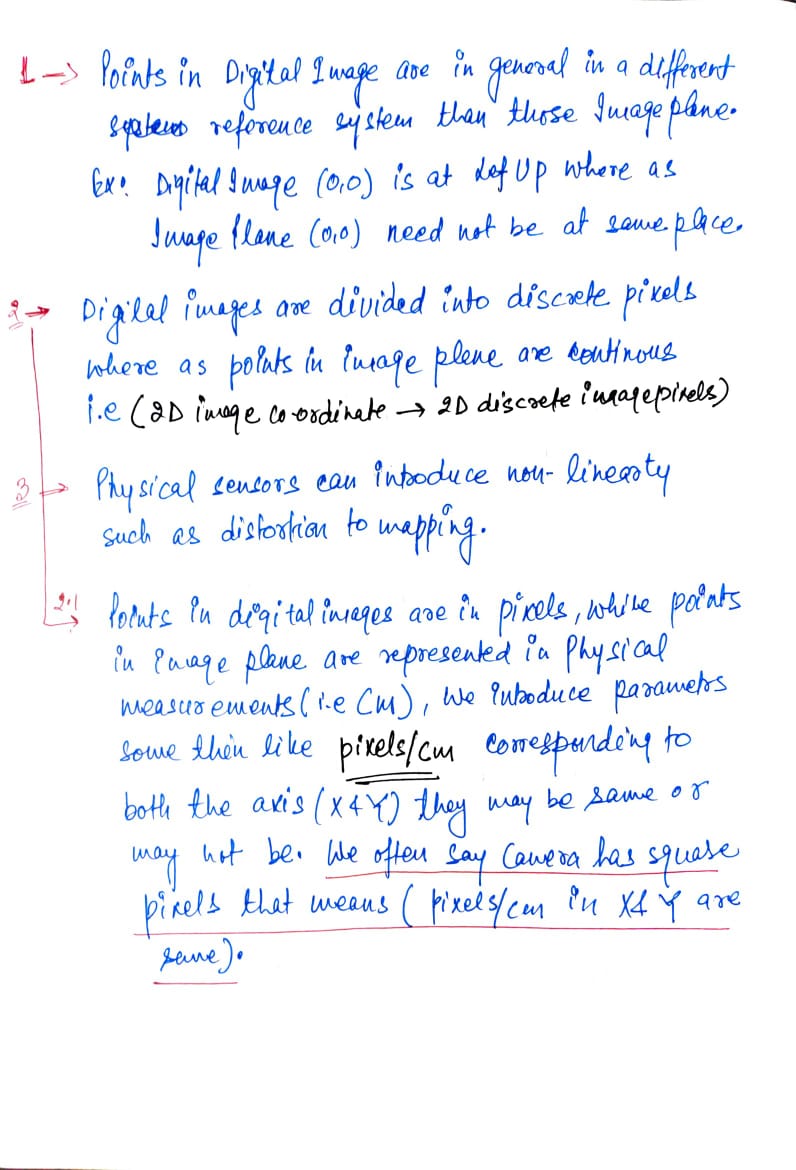 1 → Points in Digital Image are in general in a different
reference system than those Image plane.
Ex: Digital Image (0,0) is at Lef Up where as
Image Plane (0,0) need not be at same place.
2 → Digital images are divided into discrete pixels
where as points in image plane are continous
i.e (2D image co-ordinate → 2D discrete image pixels)
3 → Physical sensors can introduce non-linearty
such as distortion to mapping.
2.1 → Points in digital images are in pixels, while points
in image plane are represented in Physical
measurements (i.e Cm), We introduce parameters
some thin like pixels/cm corresponding to
both the axis (X & Y) they may be same or
may not be. We often say Camera has square
pixels that means ( pixels/cm in X & Y are
same).